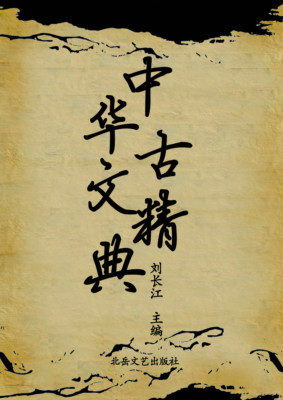 中华古文精典
刘长江 主编
北岳文艺出版社